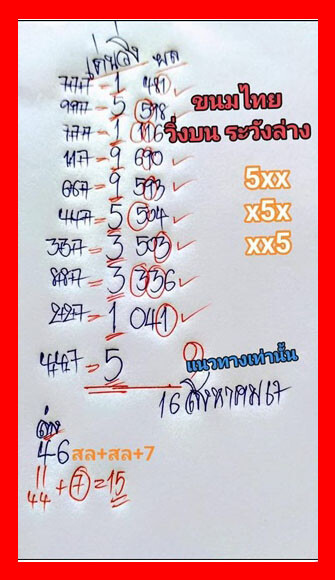 เด่นวิ่ง ผล
777-1 491
997-5 518
777-1 116
117-9 690
667-9 593
447-5 504
337-3 503
887-3 336
227-1 041
447-5
16 สิงหาคม 67
ขนมไทย
วิ่งบน ระวังล่าง
5xx
x5x
xx5
แนวทางเท่านั้น
46 สล+สล+7
44+7=15